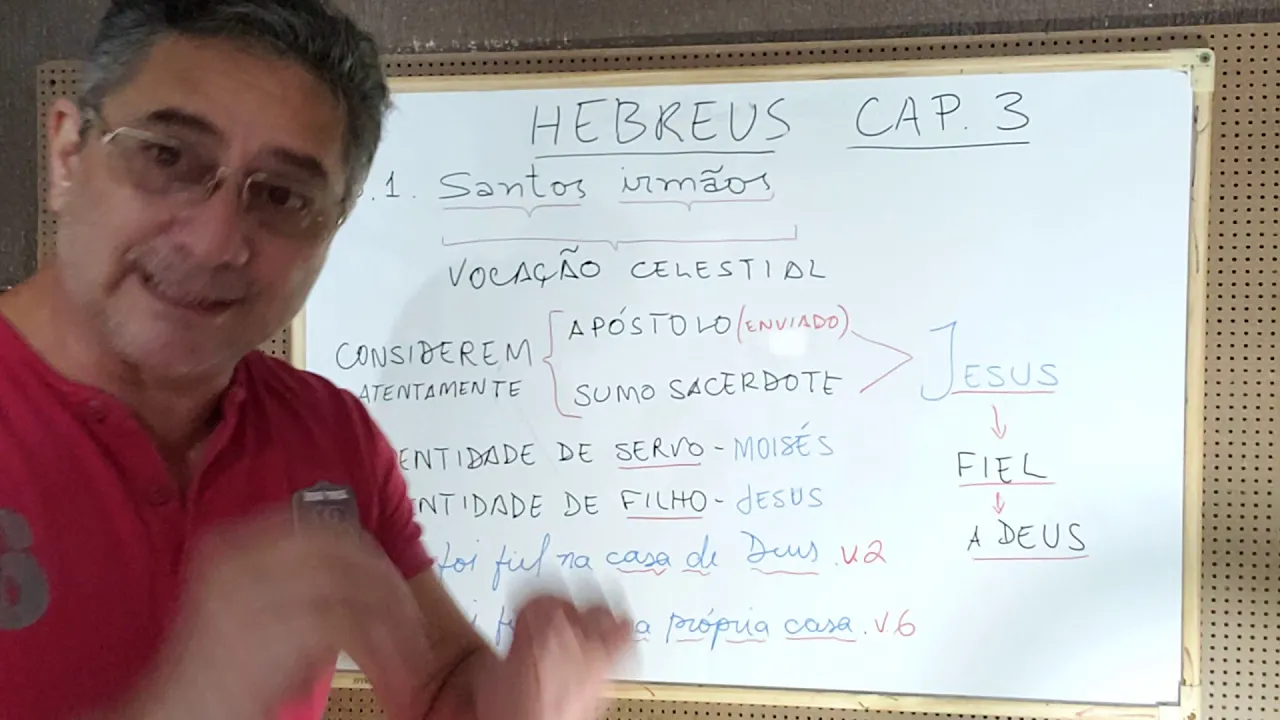 HEBREUS CAP. 3
.1. Santos irmãos
VOCAÇÃO CELESTIAL
CONSIDEREM
ATENTAMENTE
APÓSTOLO (ENVIADO)
SUMO SACERDOTE
JESUS
FIEL
A DEUS
ENTIDADE DE SERVO - MOISÉS
ENTIDADE DE FILHO - JESUS
foi fiel na casa de Deus. v.2
própria casa. v.6